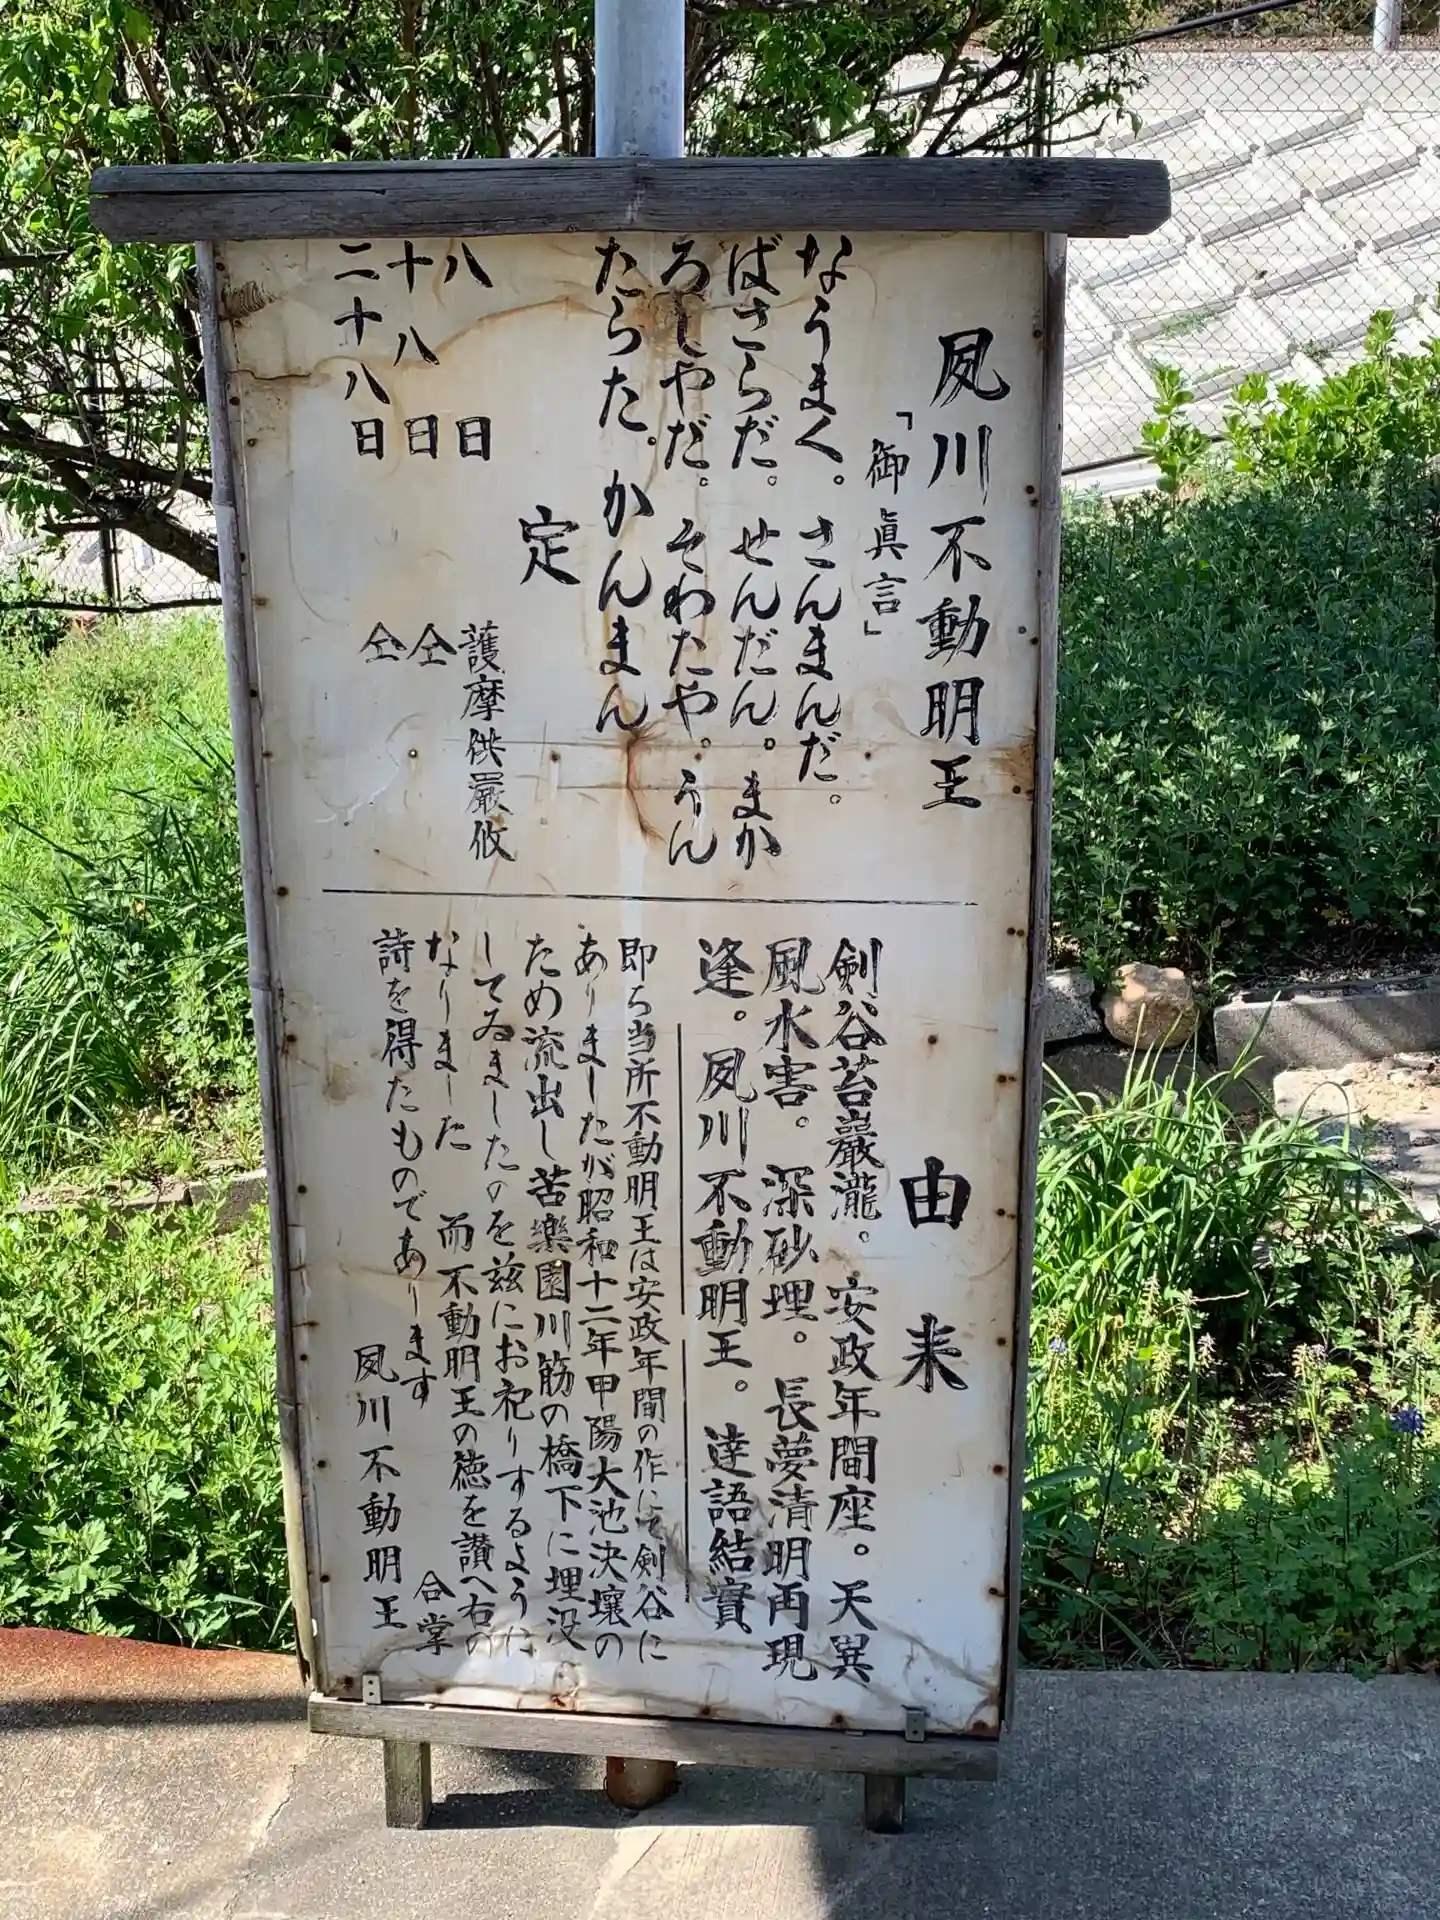 夙川不動明王
「御眞言」
なうまく。さんまんだ。
ばさらだ。せんだん。まか
ろしやだ。そわたや。うん
たらた。かんまん
定
八日 護摩供嚴修
十八日 仝
二十八日 仝
由来
剣谷苔巖瀧。安政年間座。天異
風水害。深砂埋。長夢清明両現
逢。夙川不動明王。達語結實
即ち当所不動明王は安政年間の作にて剣谷に
ありましたが昭和十二年甲陽大池決壊の
ため流出し苦樂園川筋の橋下に埋没
してゐましたのを茲にお祀りするように
なりました 而不動明王の徳を讃へ右の
詩を得たものであります
合掌
夙川不動明王